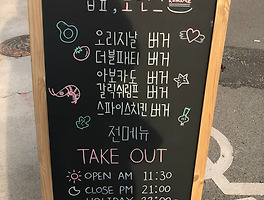 오리지날 버거
더블패티 버거
아보카도 버거
갈릭쉬림프 버거
스파이스치킨 버거
전메뉴
TAKE OUT
OPEN AM 11:30
CLOSE PM 21:00
HOLIDAY 22:00